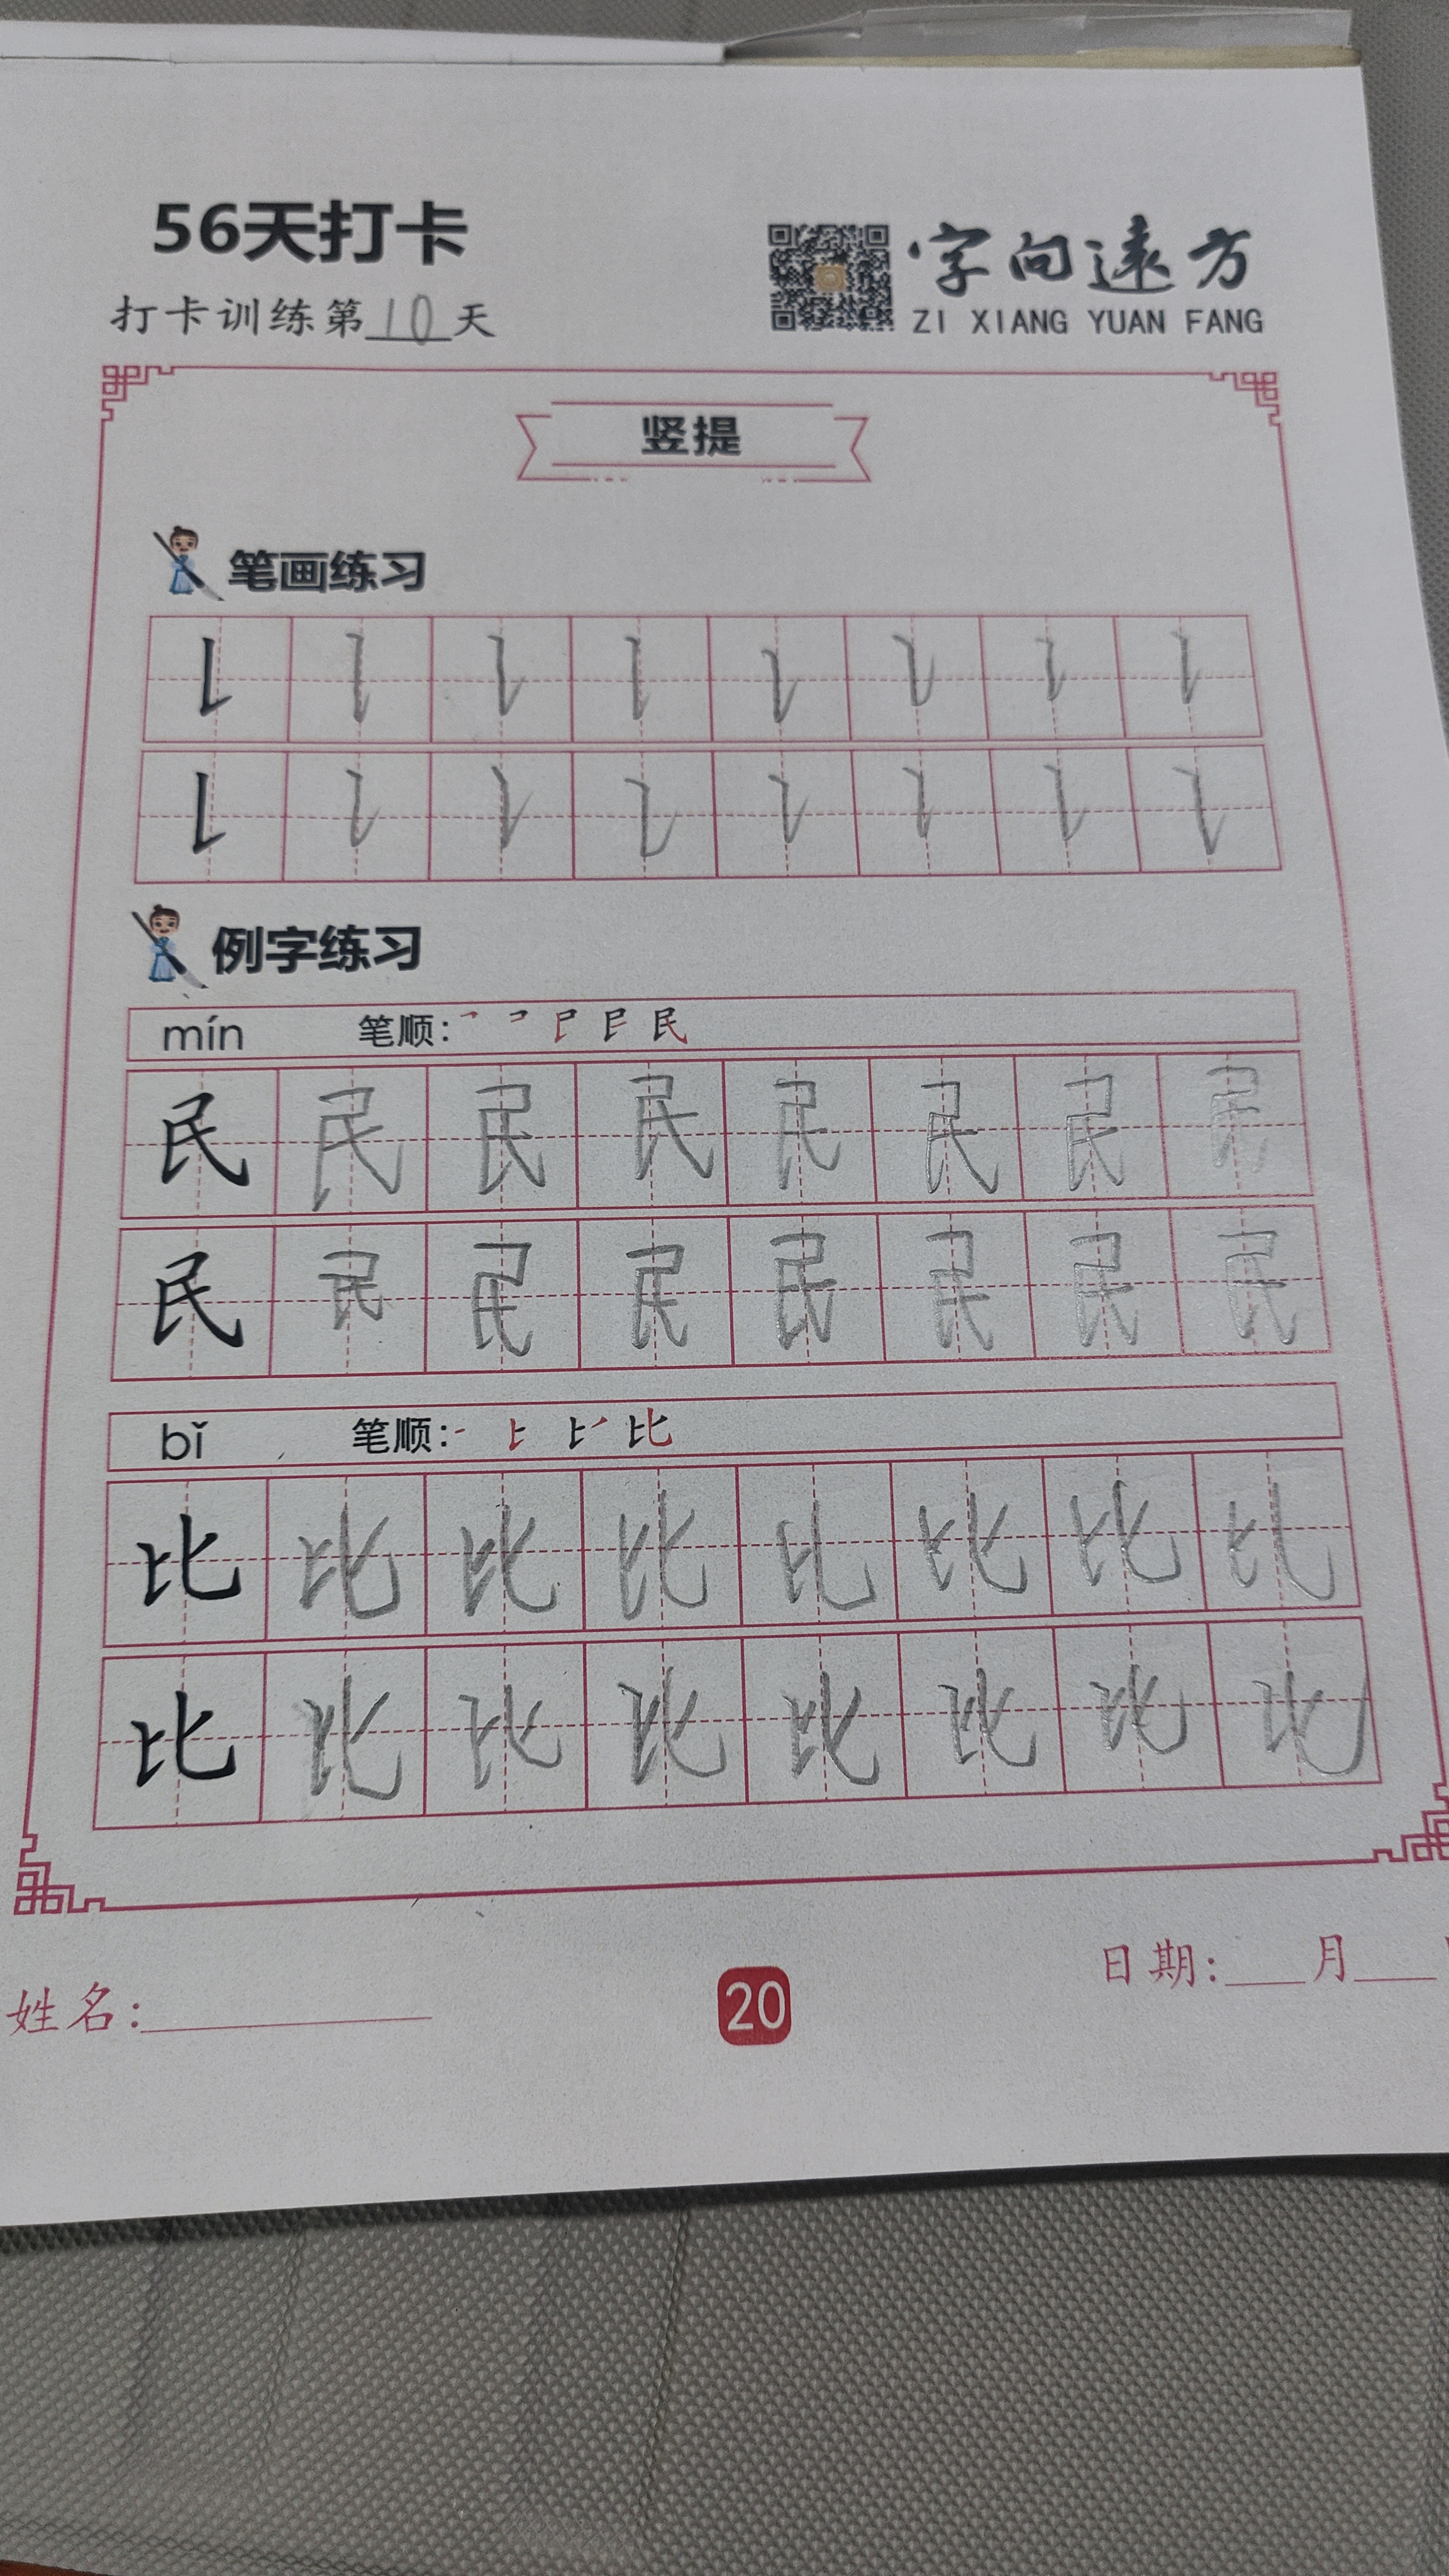 56天打卡
字向遠方
打卡训练第10天
ZI XIANG YUAN FANG
竖提
笔画练习
例字练习
mín 笔顺:
民 民 民 民 民 民 民 民
民 民 民 民 民 民 民 民
bǐ 笔顺: 比
比 比 比 比 比 比 比 比
比 比 比 比 比 比 比 比
姓名:
20
日期: 月